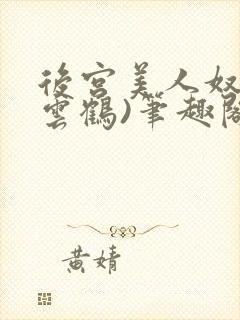 後宮美人奴
雲鶴)筆趣閣
黃婧